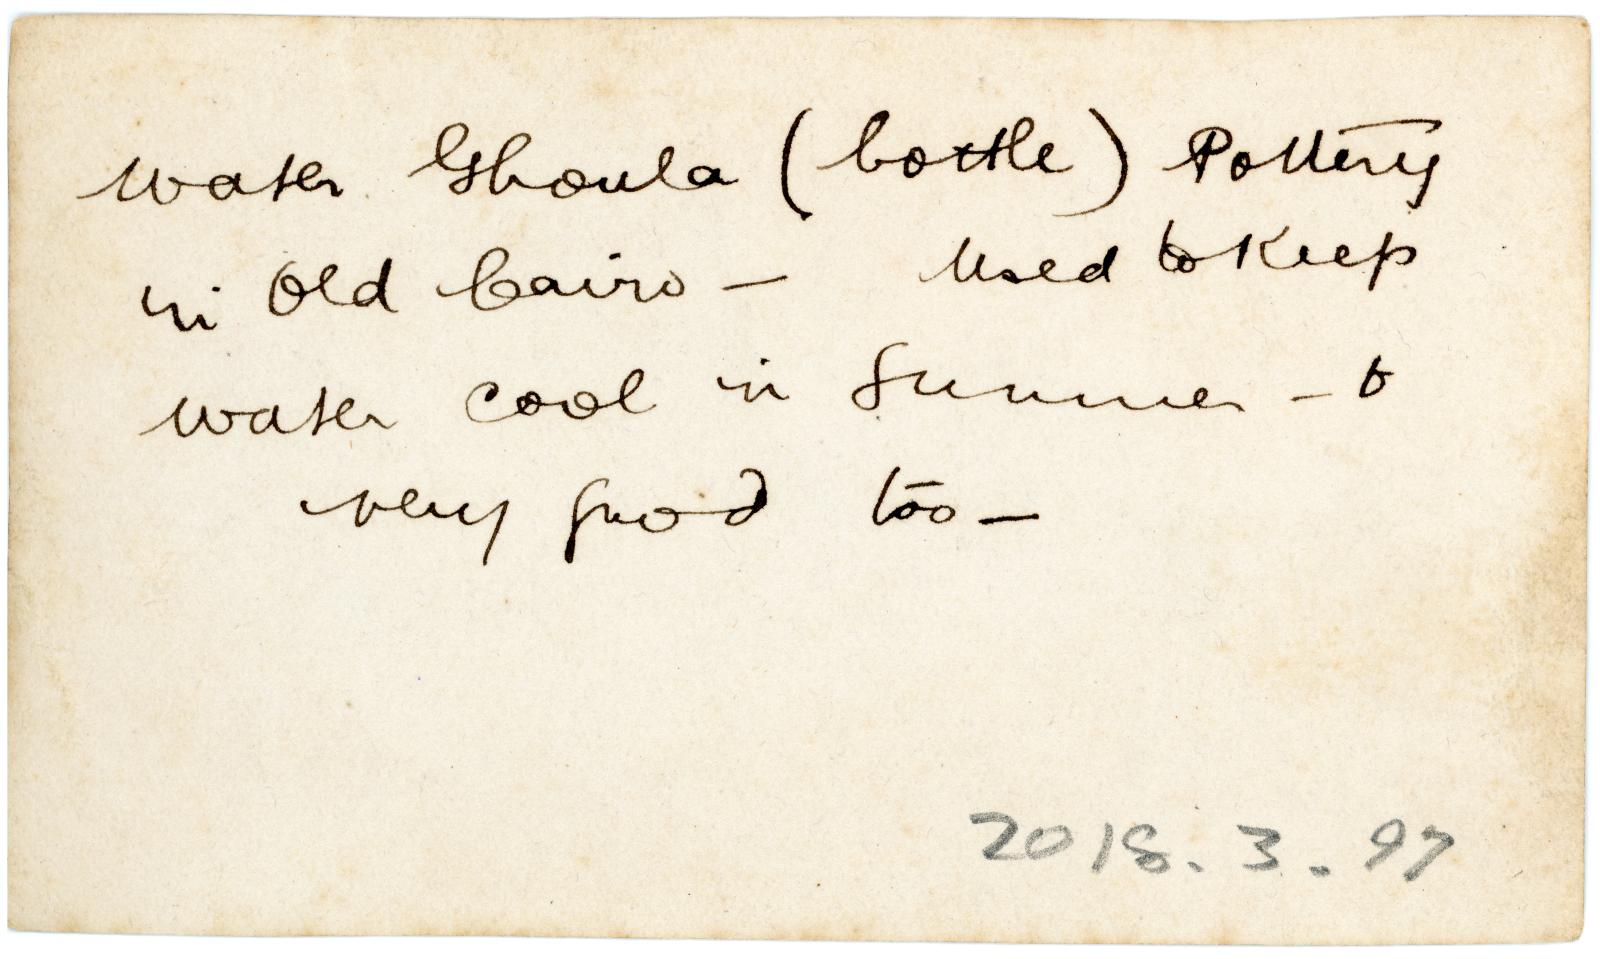 Water Ghoula (bottle) Pottery
in Old Cairo — Used to Keep
water cool in Summer — &
very good too —
2018.3.97